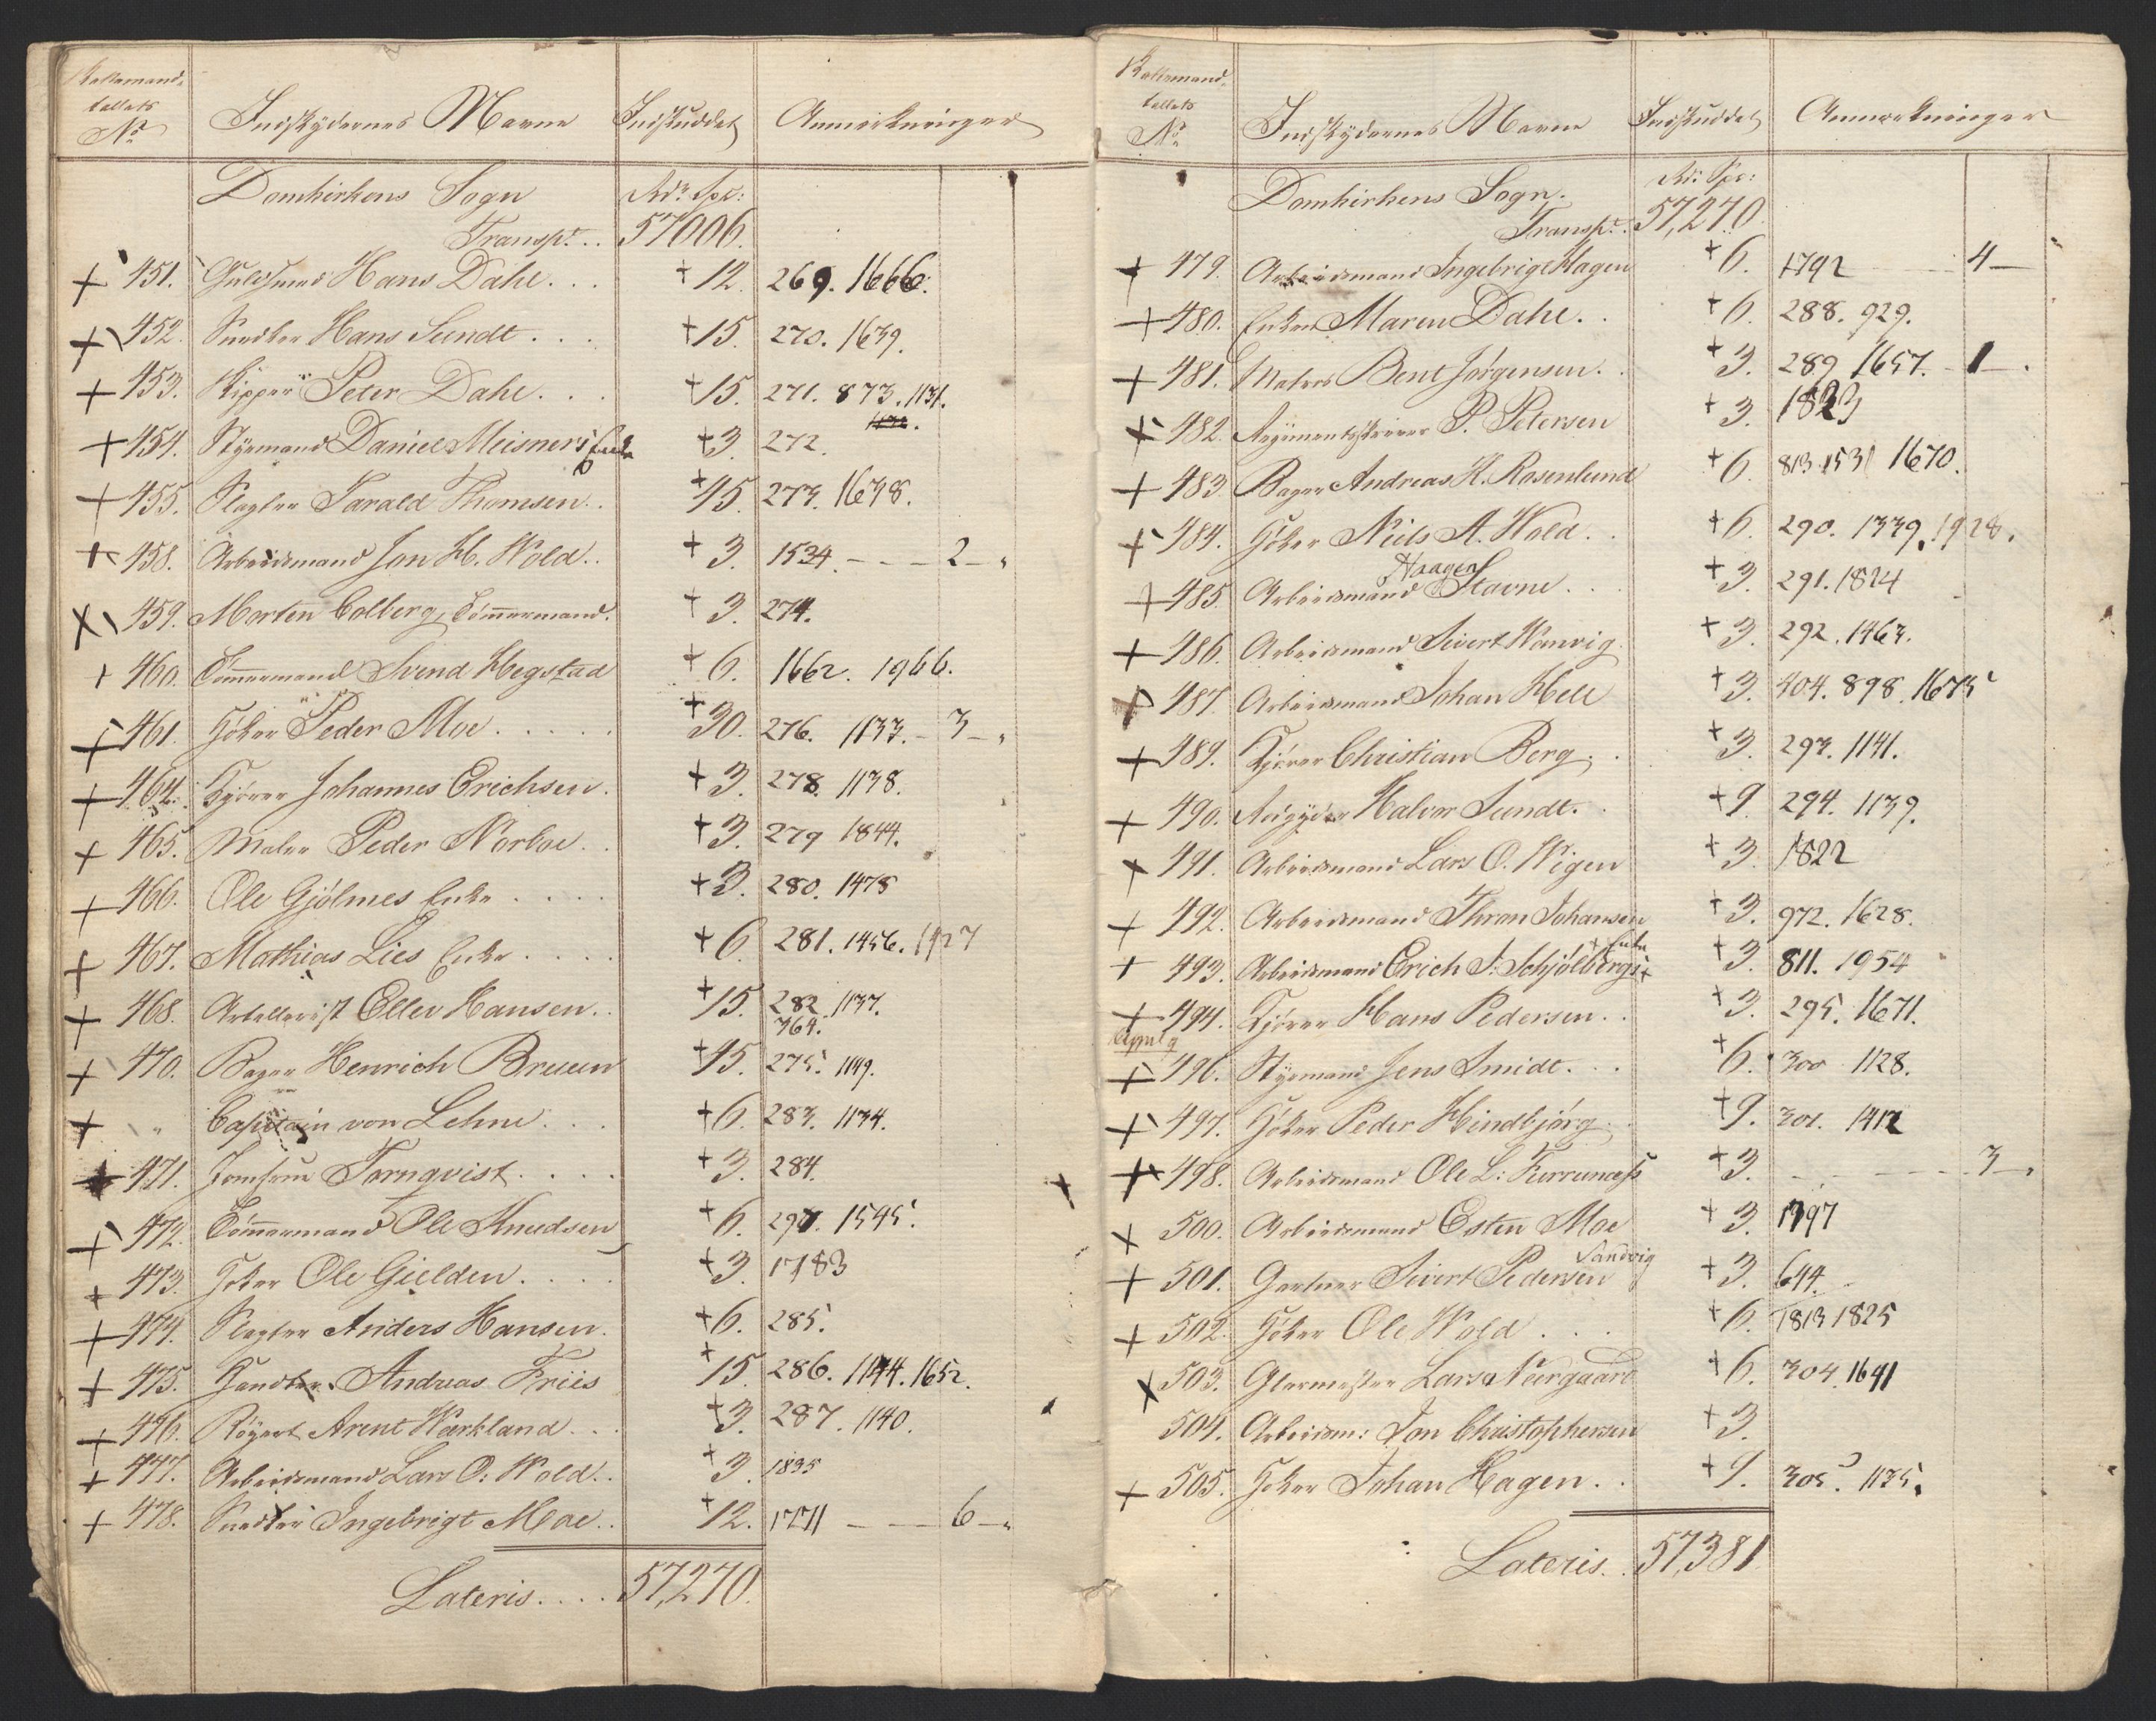 Skattemand-
tallets
No Indskydernes Navne Indskuddet Anmerkninger
Domkirkens Sogn Rdr. Spe:
Transpt. . 57006.
+ 451. Guldsmed Hans Dahl. . . + 12. 269. 1666.
+ 452. Snedker Hans Sundt . . . + 15. 270. 1639.
+ 453. Skipper Peter Dahl. . . + 15. 271. 873. 1131.
+ 454. Styrmand Daniel Meisners Enke + 3. 272.
+ 455. Slagter Tarald Thomsen. . + 15. 273. 1638.
+ 458. Arbeidsmand Jon H. Wold. . + 3. 1534. - - - 2 - "
+ 459. Morten Colberg, Tömmermand. + 3. 274.
+ 460. Tömmermand Svend Hegstad + 6. 1662. 1966.
+ 461. Höker Peder Moe . . . . . + 30. 276. 1133. - 3 - "
+ 464. Kjörer Johannes Erichsen. + 3. 278. 1138.
+ 465. Maler Peder Norboe . . + 3. 279 1844.
+ 466. Ole Gjölmes Enke . . . . + 3. 280. 1478
+ 467. Mathias Lies Enke . . . . + 6. 281. 1456. 1927
+ 468. Artellerist Eller Hansen. . + 15. 282. 1137.
764.
+ 470. Bager Henrich Bruun + 15. 275. 1149.
+ " Capitain von Lehne. . . + 6. 283. 1134.
+ 471. Jomfrue Tornqvist . . . . + 3. 284.
+ 472. Tömmermand Ole Knudsen + 6. 297. 1545.
+ 473. Höker Ole Gielden. . . . + 3. 1783
+ 474. Slagter Anders Hansen. + 6. 285.
+ 475. Handler Andreas Friis + 15. 286. 1144. 1652.
+ 476. Rögert Arent Werkland. . . + 3. 287. 1140.
+ 477. Arbeidsmand Lars O: Wold. . + 3. 1835
+ 478. Snedker Ingebrigt Moe. . + 12. 1711 - - - 6 - "
Lateris. . . . 57,270.
Skattemand-
tallets
No Indskydernes Navne Indskuddet Anmerkninger
Domkirkens Sogn. Rd: Spe:
Transpt. . 57,270.
+ 479. Arbeidsmand Ingebrigt Hagen + 6. 1792 - - - 4 -
+ 480. Enken Maren Dahl. . + 6. 288. 929.
+ 481. Matros Bent Jörgensen. . + 3. 289 1657. - 1 - .
+ 482. Regimentsskriver P. Petersen + 3. 1823
+ 483. Bager Andreas H. Rosenlund + 6. 813 1531 1670.
+ 484. Höker Niels A. Wold. . + 6. 290. 1339. 1928.
Haagen
+ 485. Arbeidsmand Stavne . . . + 3. 291. 1824
+ 486. Arbeidsmand Sivert Wanvig. + 3. 292. 1463.
+ 487. Arbeidsmand Johan Hell + 3. 404. 898. 1675
+ 489. Kjörer Christian Berg. . + 3. 293. 1141.
+ 490. Halvor Sundt. . + 9. 294. 1139.
+ 491. Arbeidsmand Lars O. Wigen + 3. 1822
+ 492. Arbeidsmand Thron Johansen + 3. 972. 1628.
+ Enke
+ 493. Arbeidsmand Erich J: Schjölbergs + + 3. 811. 1954
+ 494. Kjörer Hans Pedersen. . + 3. 295. 1671.
+ 496. Styrmand Jens Smidt. . . + 6. 300 1128.
+ 497. Höker Peder Hindbjörg. . + 9. 301. 1412
+ 498. Arbeidsmand Ole L: + 3. - - - 3 - "
+ 500. Arbeidsmand Esten Moe + 3. 1797
Sandvig
+ 501. Gartner Sivert Pedersen + 3. 644.
+ 502. Höker Ole Wold . . . + 6. 1813 1825
+ 503. Glarmester Lars Neergaard + 6. 304. 1641
504. Arbeidsm: Jon Christophersen + 3.
+ 505. Höker Johan Hagen. . + 9. 305. 1135.
Lateris. . 57,381